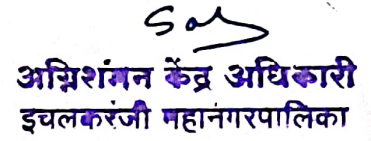 अग्निशमन केंद्र अधिकारी
इचलकरंजी महानगरपालिका